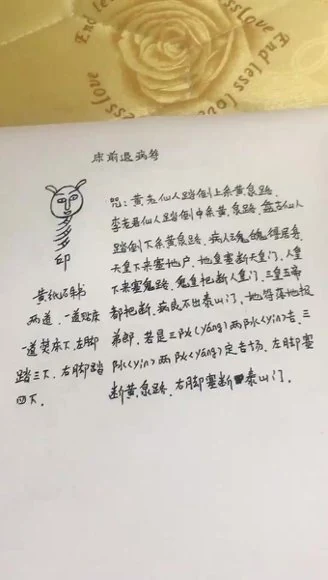 End less love
End less love
床前退病符
咒：黄老仙人踏倒上条黄泉路，
李老君仙人踏倒中条黄泉路，盘古仙人
踏倒下条黄泉路，病人三魂魄得居身
天皇下来塞地户，地皇塞断天皇门，人皇
下来塞鬼路，鬼道把断人皇门，三皇五帝
都把断，病民不出泰山门，他符落地报
弟郎，若是三阳(yang)两阴(yin)吉，三
阴(yin)两阳(yang)定吉场，左脚塞
断黄泉路，右脚塞断泰山门。
印
黄纸
两道，一道贴床
一道焚床下，左脚
踏三下，右脚踏
四下，